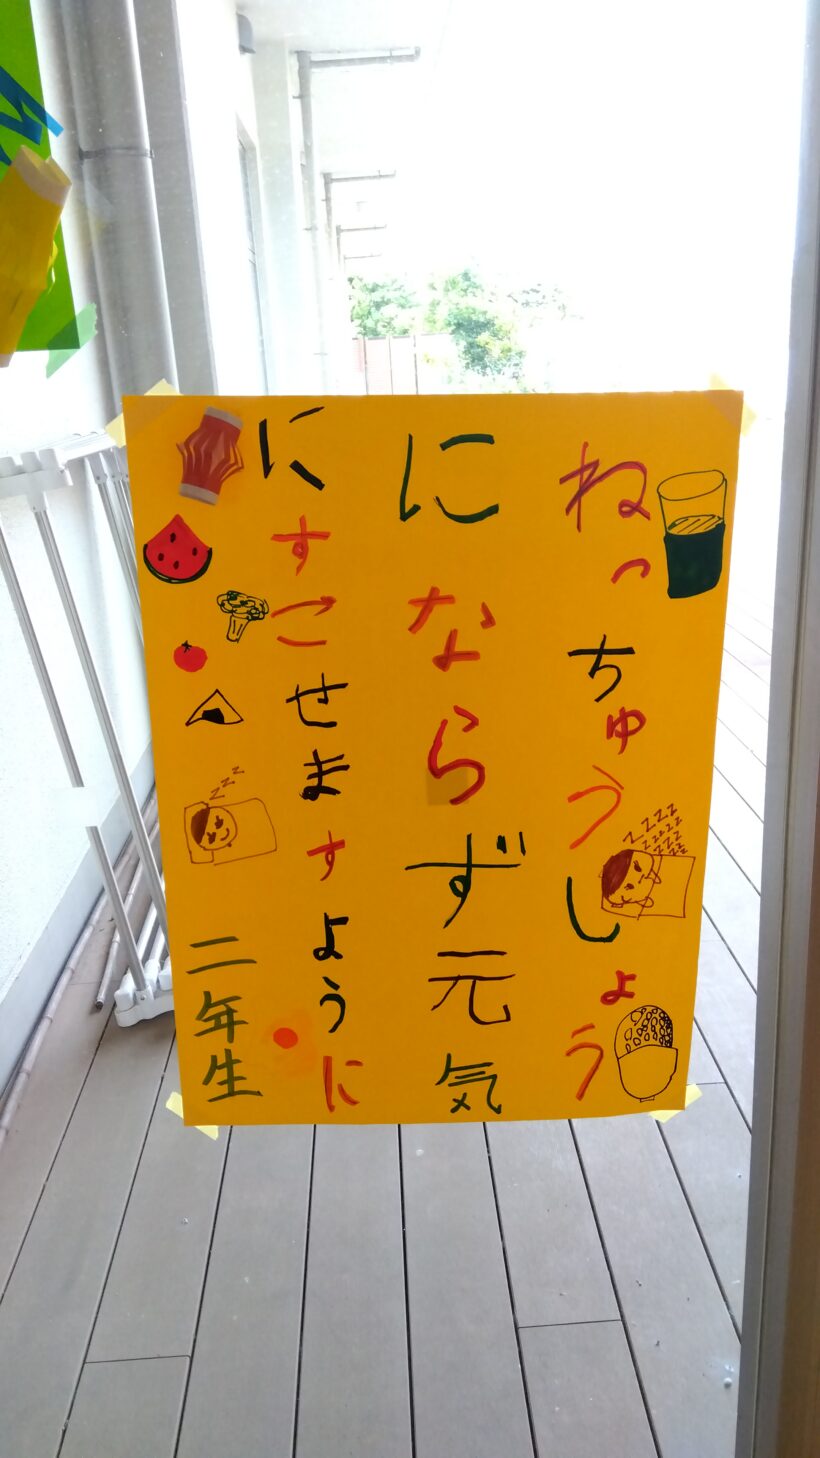 ねっちゅうしょう
にならず元気
にすごせますように
二年生
zzz
zzzzzzzzzzzz